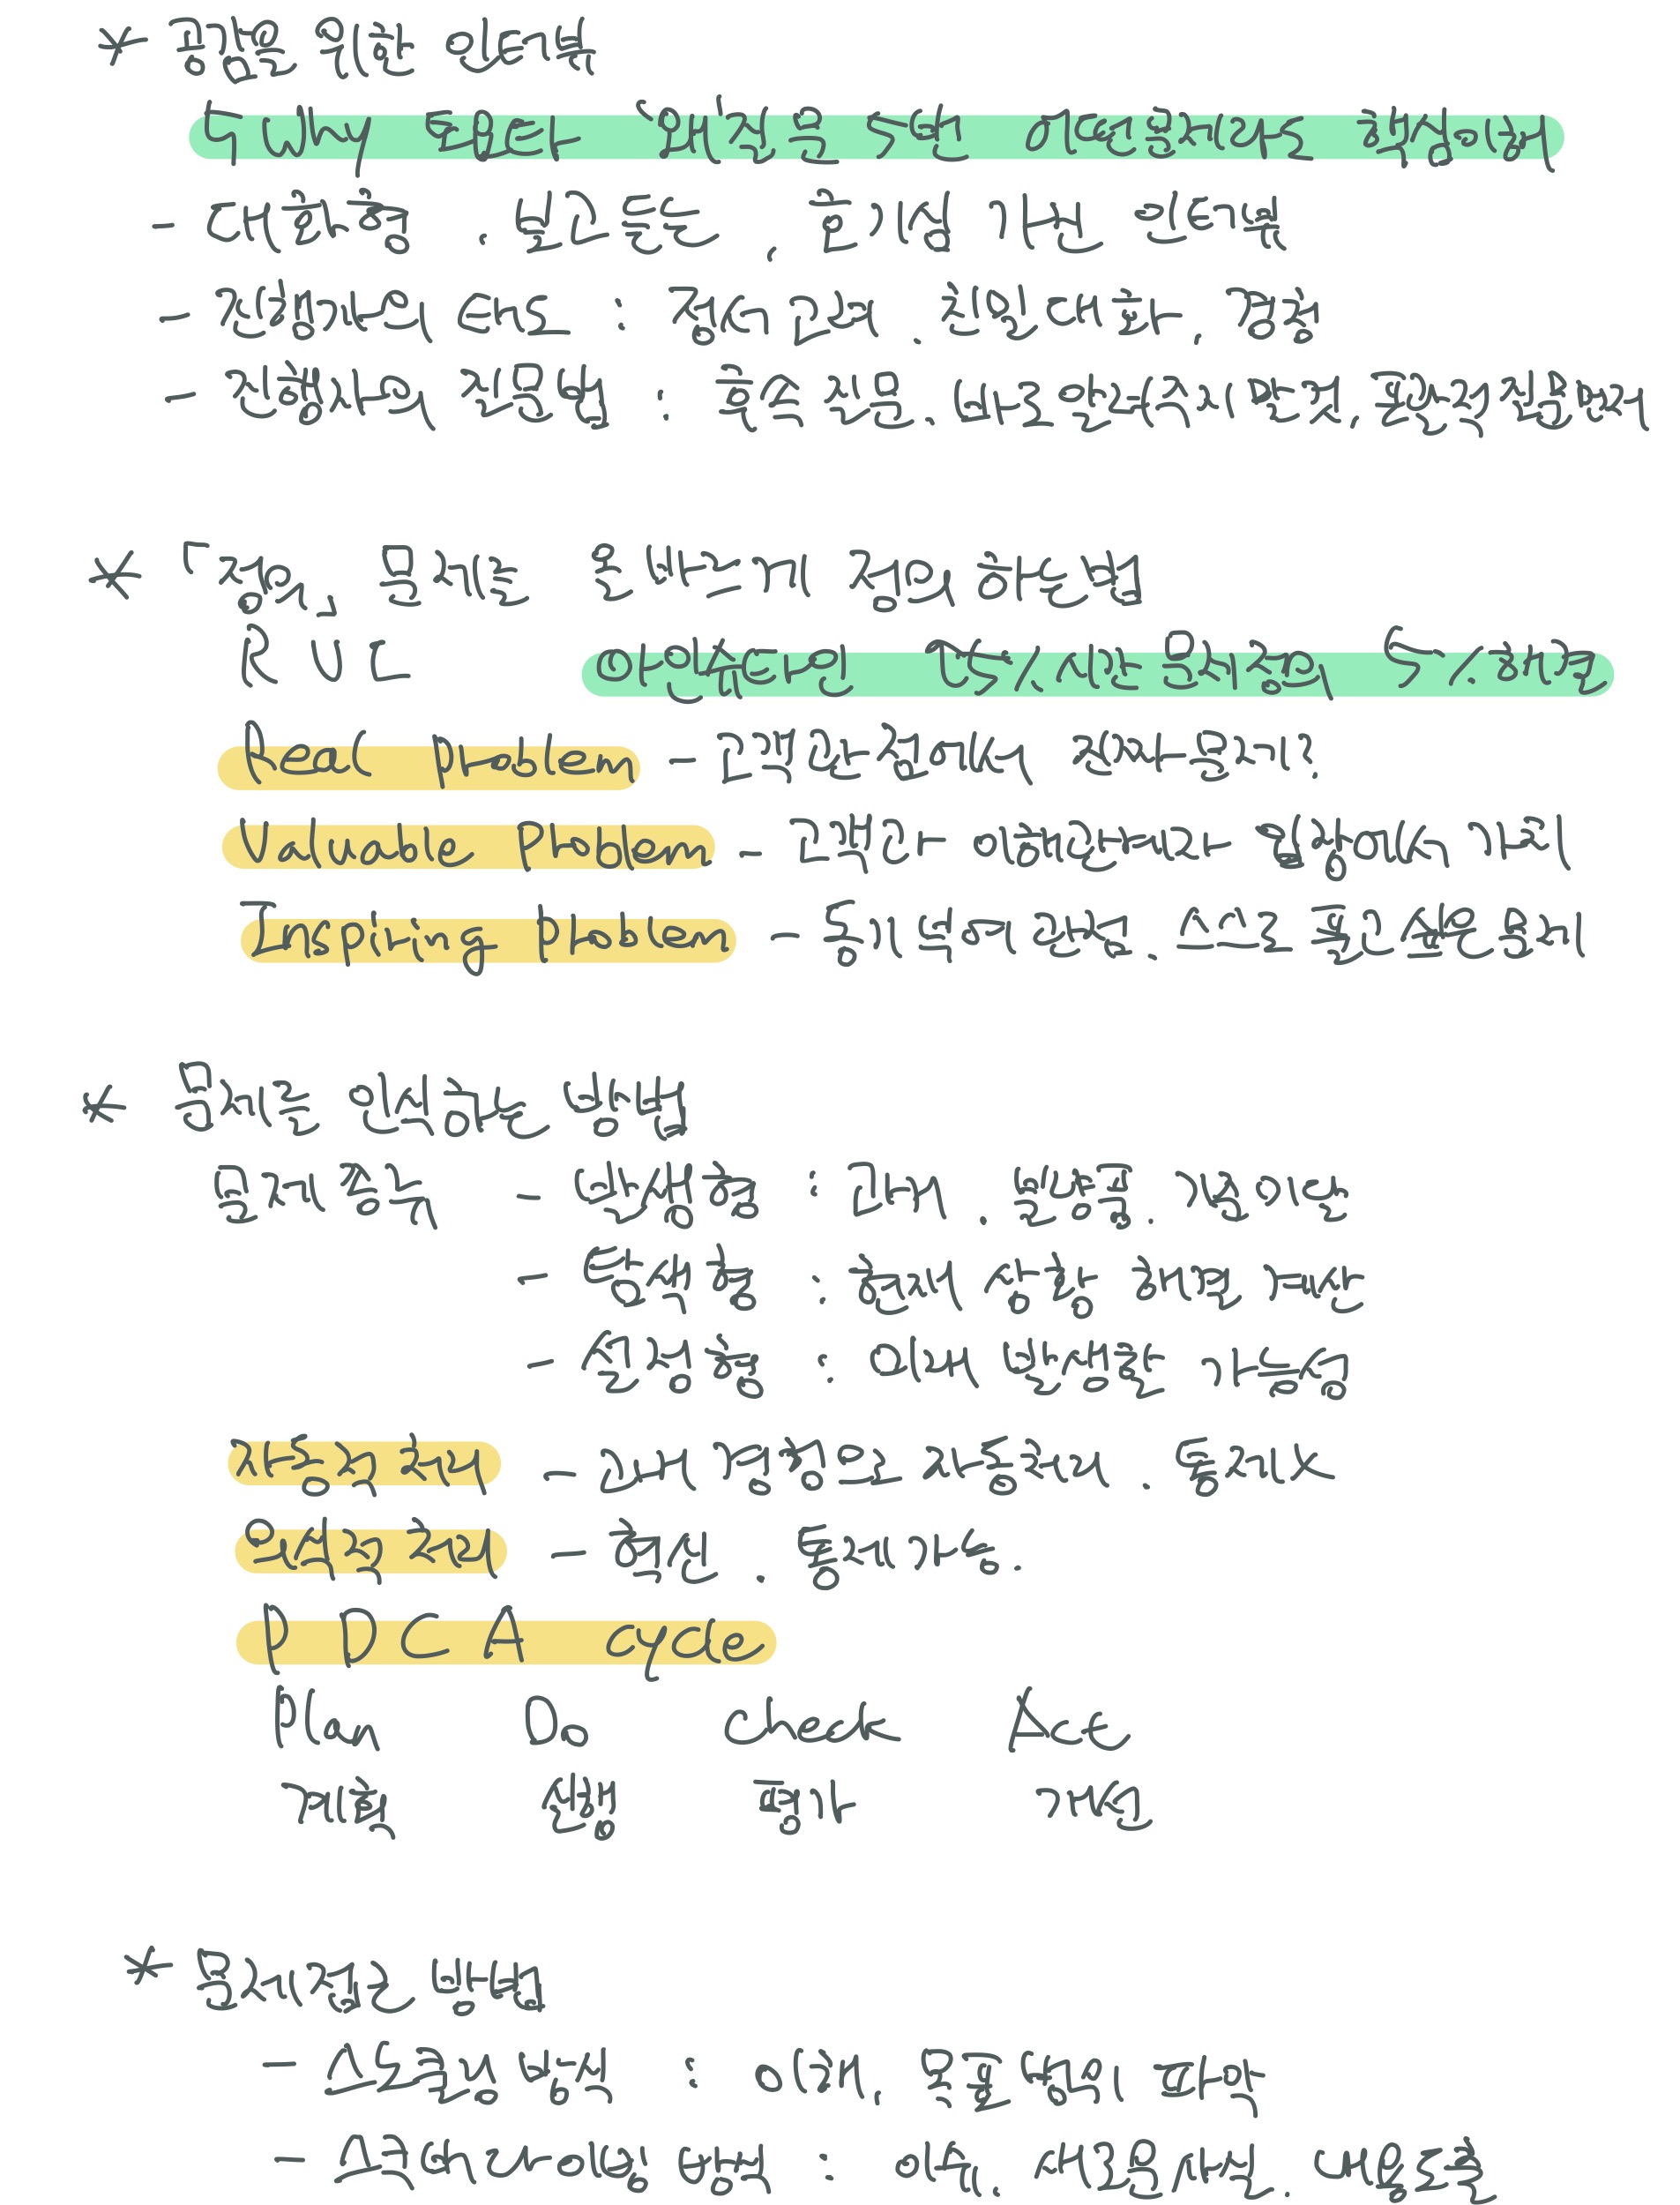 * 공감을 위한 인터뷰
5 Why 토요타 '왜'질문 5번 이면 문제라도 핵심이해
- 대화형 . 보고듣는 , 호기심 가진 인터뷰
- 진행자의 태도 : 정서관리 . 친밀대화, 경청
- 진행자의 질문법 : 후속 질문. 바로 앞서가지 말것. 포괄적질문먼저
* 「정의」 문제를 올바르게 정의 하는법
R V I 아인슈타인 95% 시간 문제정의, 5% 해결
Real problem - 고객관점에서 진짜문제?
Valuable Problem - 고객과 이해관계자 입장에서 가치
Inspiring Problem - 동기부여 관점. 스스로 풀고 싶은 문제
* 문제를 인식하는 방법
문제종류 - 발생형 : 과거 . 불량품. 기준미달
- 탐색형 : 현재 상황 해결 개선
- 설정형 : 미래 발생할 가능성
자동적 처리 - 과거 경험으로 자동처리 . 통제X
의식적 처리 - 혁신 . 통제가능.
P D C A cycle
Plan Do Check Act
계획 실행 평가 개선
* 문제접근 방법
- 스노클링 방식 : 이해, 목표범위 파악
- 스쿠버다이빙 방식 : 이슈, 새로운사실. 내용도출